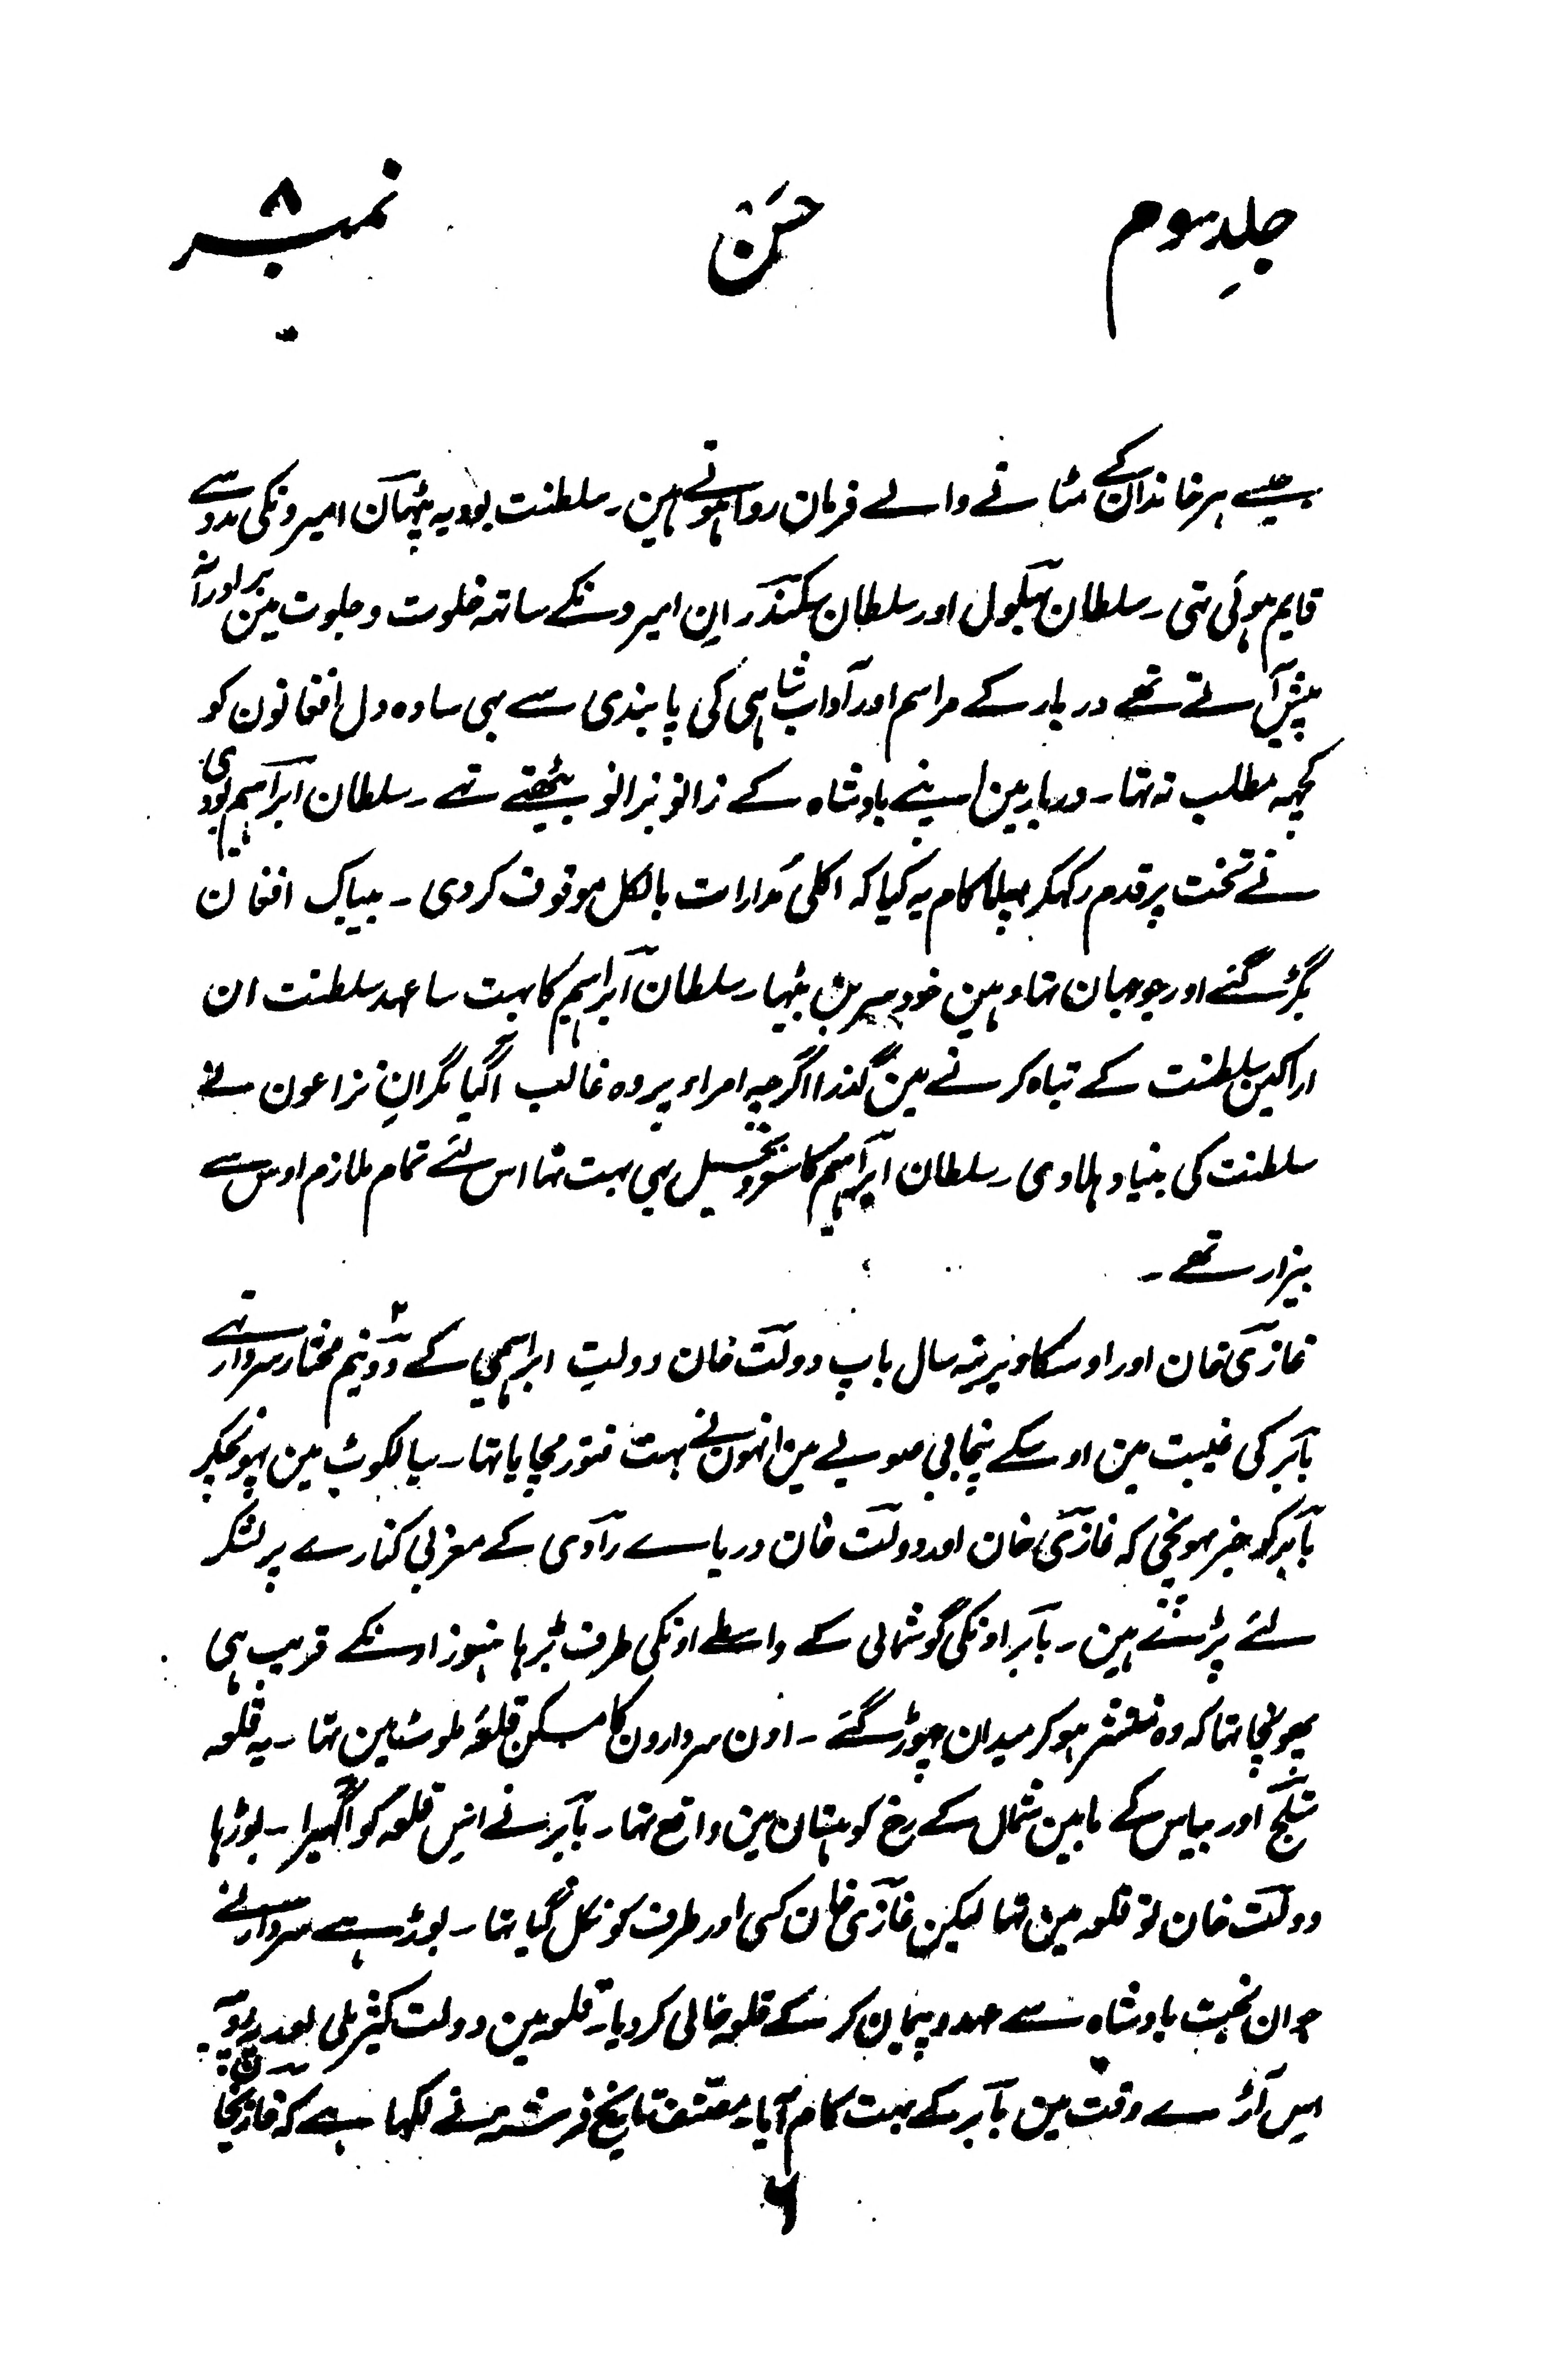 جلدِ سوم
حسن
نمبر ۸
جیسے ہر خاندان کے مٹانے والے فرمان روا ہوتے ہین۔ سلطنت لودیہ پٹہان امیرونکی مدد سے
قایم ہوئی تہی۔ سلطان بہلول اور سلطان سکندر ان امیرونکے ساتہ خلوت و جلوت مین برادرانہ
پیش آتے تہے دربار کے مراسم اور آداب شاہی کی پابندی سے بہی سادہ دل افغانون کو
کچہہ مطلب نہ تہا۔ دربار مین اپنے بادشاہ کے زانو بزانو بیٹھتے تہے۔ سلطان ابراہیم لودی
نے تخت پر قدم رکہکر پہلا کام یہ کیا کہ اگلی مدارات بالکل موقوف کردی۔ بیباک افغان
بگڑ گئے اور جو جہان تہا وہین خود سر بن بیٹہا۔ سلطان ابراہیم کا بہت سا عہد سلطنت ان
اراکین سلطنت کے تباہ کرنے مین گذرا اگرچہ امراء پر وہ غالب آگیا مگر ان نزاعون نے
سلطنت کی بنیاد ہلادی۔ سلطان ابراہیم کا بخیل بہی بہت تہا اس لئے تمام ملازم اوس سے
بیزار تہے۔
غازی خان اور اوسکا دیرینہ سال باپ دولت خان دولتِ ابراہیمی کے دو نیم مختار سردار تہے
بابر کی غیبت مین اوسکے پنجابی صوبے مین انہون نے بہت فتور مچایا تہا۔ سیالکوٹ مین پہونچکر
بابر کو خبر پہونچی کہ غازی خان اور دولت خان دریاے راوی کے مغربی کنارے پر لشکر
لئے پڑے ہین۔ بابر اونکی گوشمالی کے واسطے اونکی طرف بڑہا ہنوز اونکے قریب ہی
پہونچا تہا کہ وہ منتشر ہوکر میدان چہوڑ گئے۔ اون سردارون کا مسکن قلعۂ ملوٹ مین تہا۔ یہ قلعہ
ستلج اور بیاس کے مابین شمال کے رخ کوہستان مین واقع تہا۔ بابر نے اس قلعہ کو آگہیرا۔ بوڑہا
دولت خان تو قلعہ مین تہا لیکن غازی خان کسی اور طرف کو نکل گیا تہا۔ بوڑہے سردار نے
جوان بخت بادشاہ سے عہد و پیمان کرکے قلعہ خالی کردیا۔ قلعہ مین دولت کثیر ملی
اس آڑے وقت مین بابر کے بہت کام آیا۔ مصنف تاریخ فرشتہ نے لکہا ہے کہ غازیخان
۶